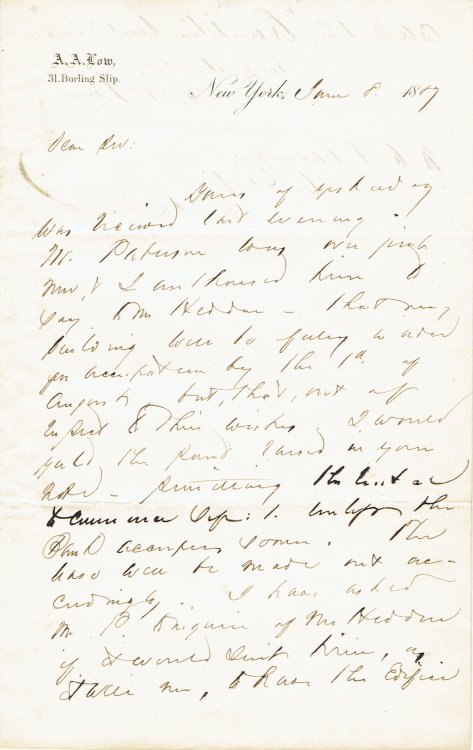 A. A. Low,
31. Burling Slip.
New York, June 8. 1887
Dear Sir:
Yours of yesterday
was received last evening.
Mr. Paterson was over just
now, & I authorized him to
say to Mr Hedden - that my
building will be fully
occupation by the 1st. of
August, but, that, out of
respect to their wishes, I would
yield the point raised in your
note - permitting the Rent
to commence Sep: 1. unless the
Bank occupies sooner. The
lease will be made out ac-
cordingly. I have asked
Mr. P to inquire of Mr Hedden
if it would suit him, as
it will me, to have the Edifice